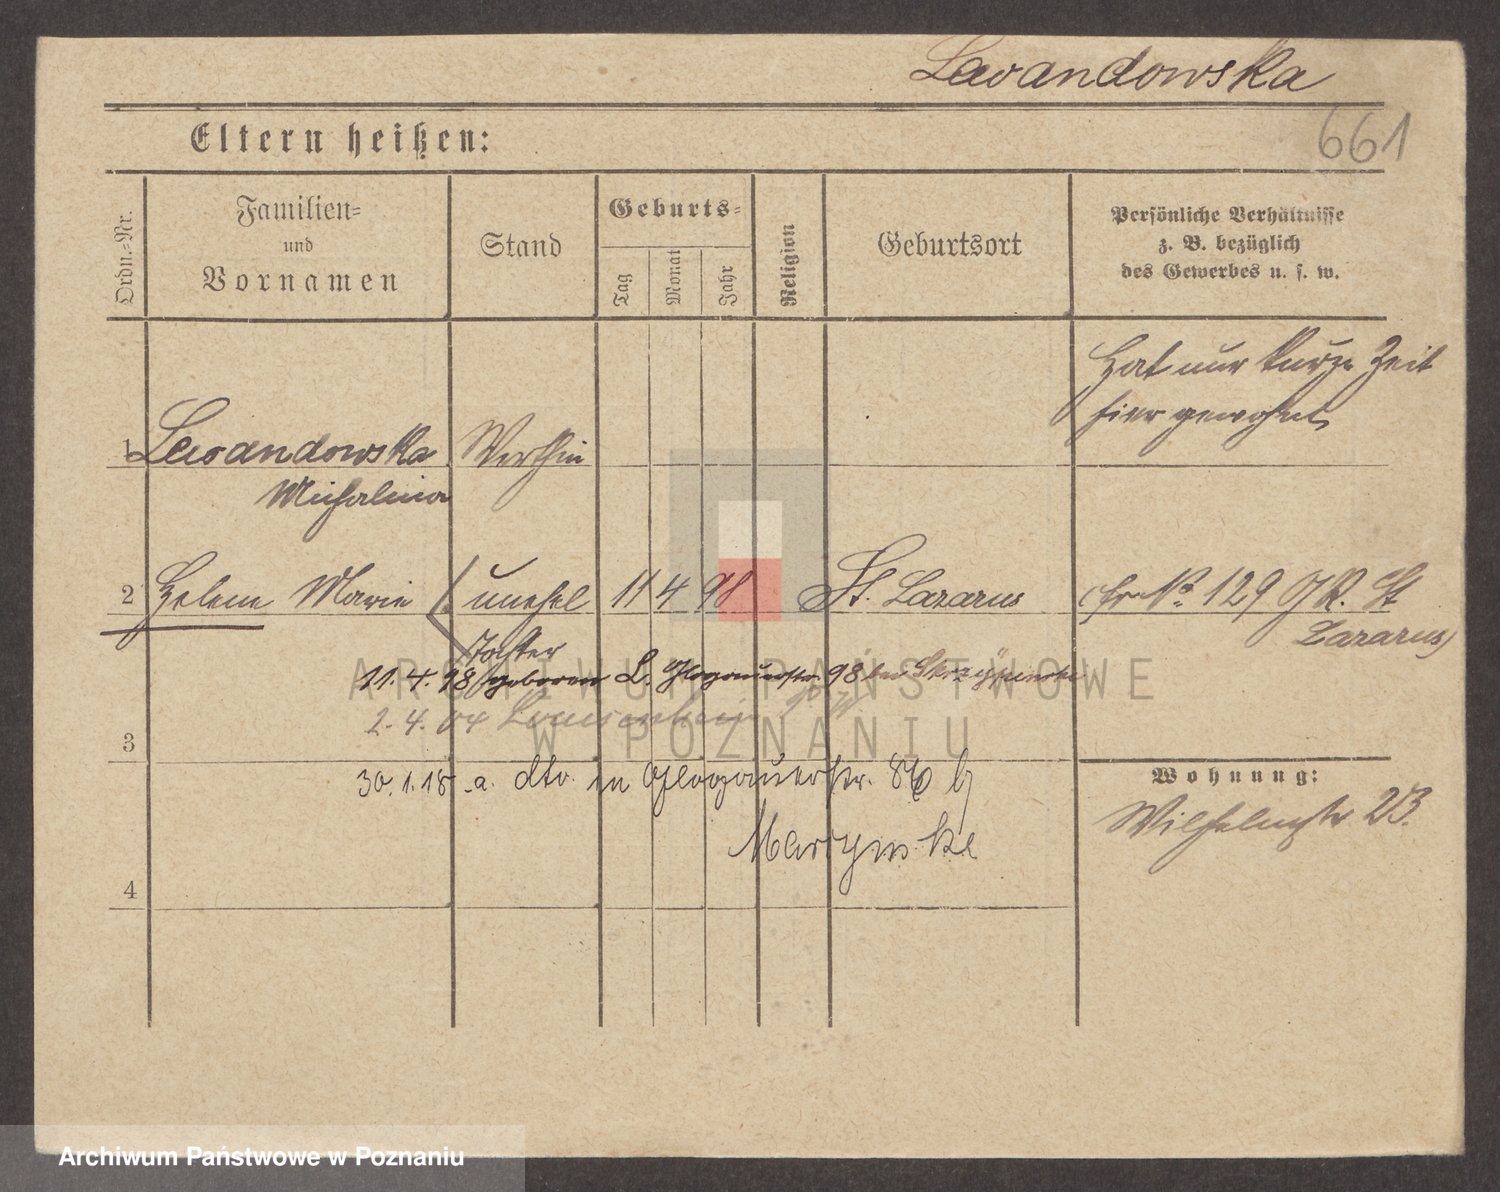 Lewandowska
661
Eltern heißen:
Ordn.-Nr.
Familien-
und
Vornamen
Stand
Geburts-
Tag
Monat
Jahr
Religion
Geburtsort
Persönliche Verhältnisse
z. B. bezüglich
des Gewerbes u. s. w.
Hat nur kurze Zeit
hier gewohnt
1 Lewandowska
Michalina
2 Helene Marie unehel 11 4 98 St. Lazarus
129 St
Lazarus)
Tochter
11. 4. 98 geboren L. Glogauerstr. 98 bei
2. 4. 04
3
30. 1. 18 a. dto in Glogauerstr. 86 b
4
Wohnung:
Wilhelmstr 23.
ARCHIWUM PAŃSTWOWE
W POZNANIU
Archiwum Państwowe w Poznaniu